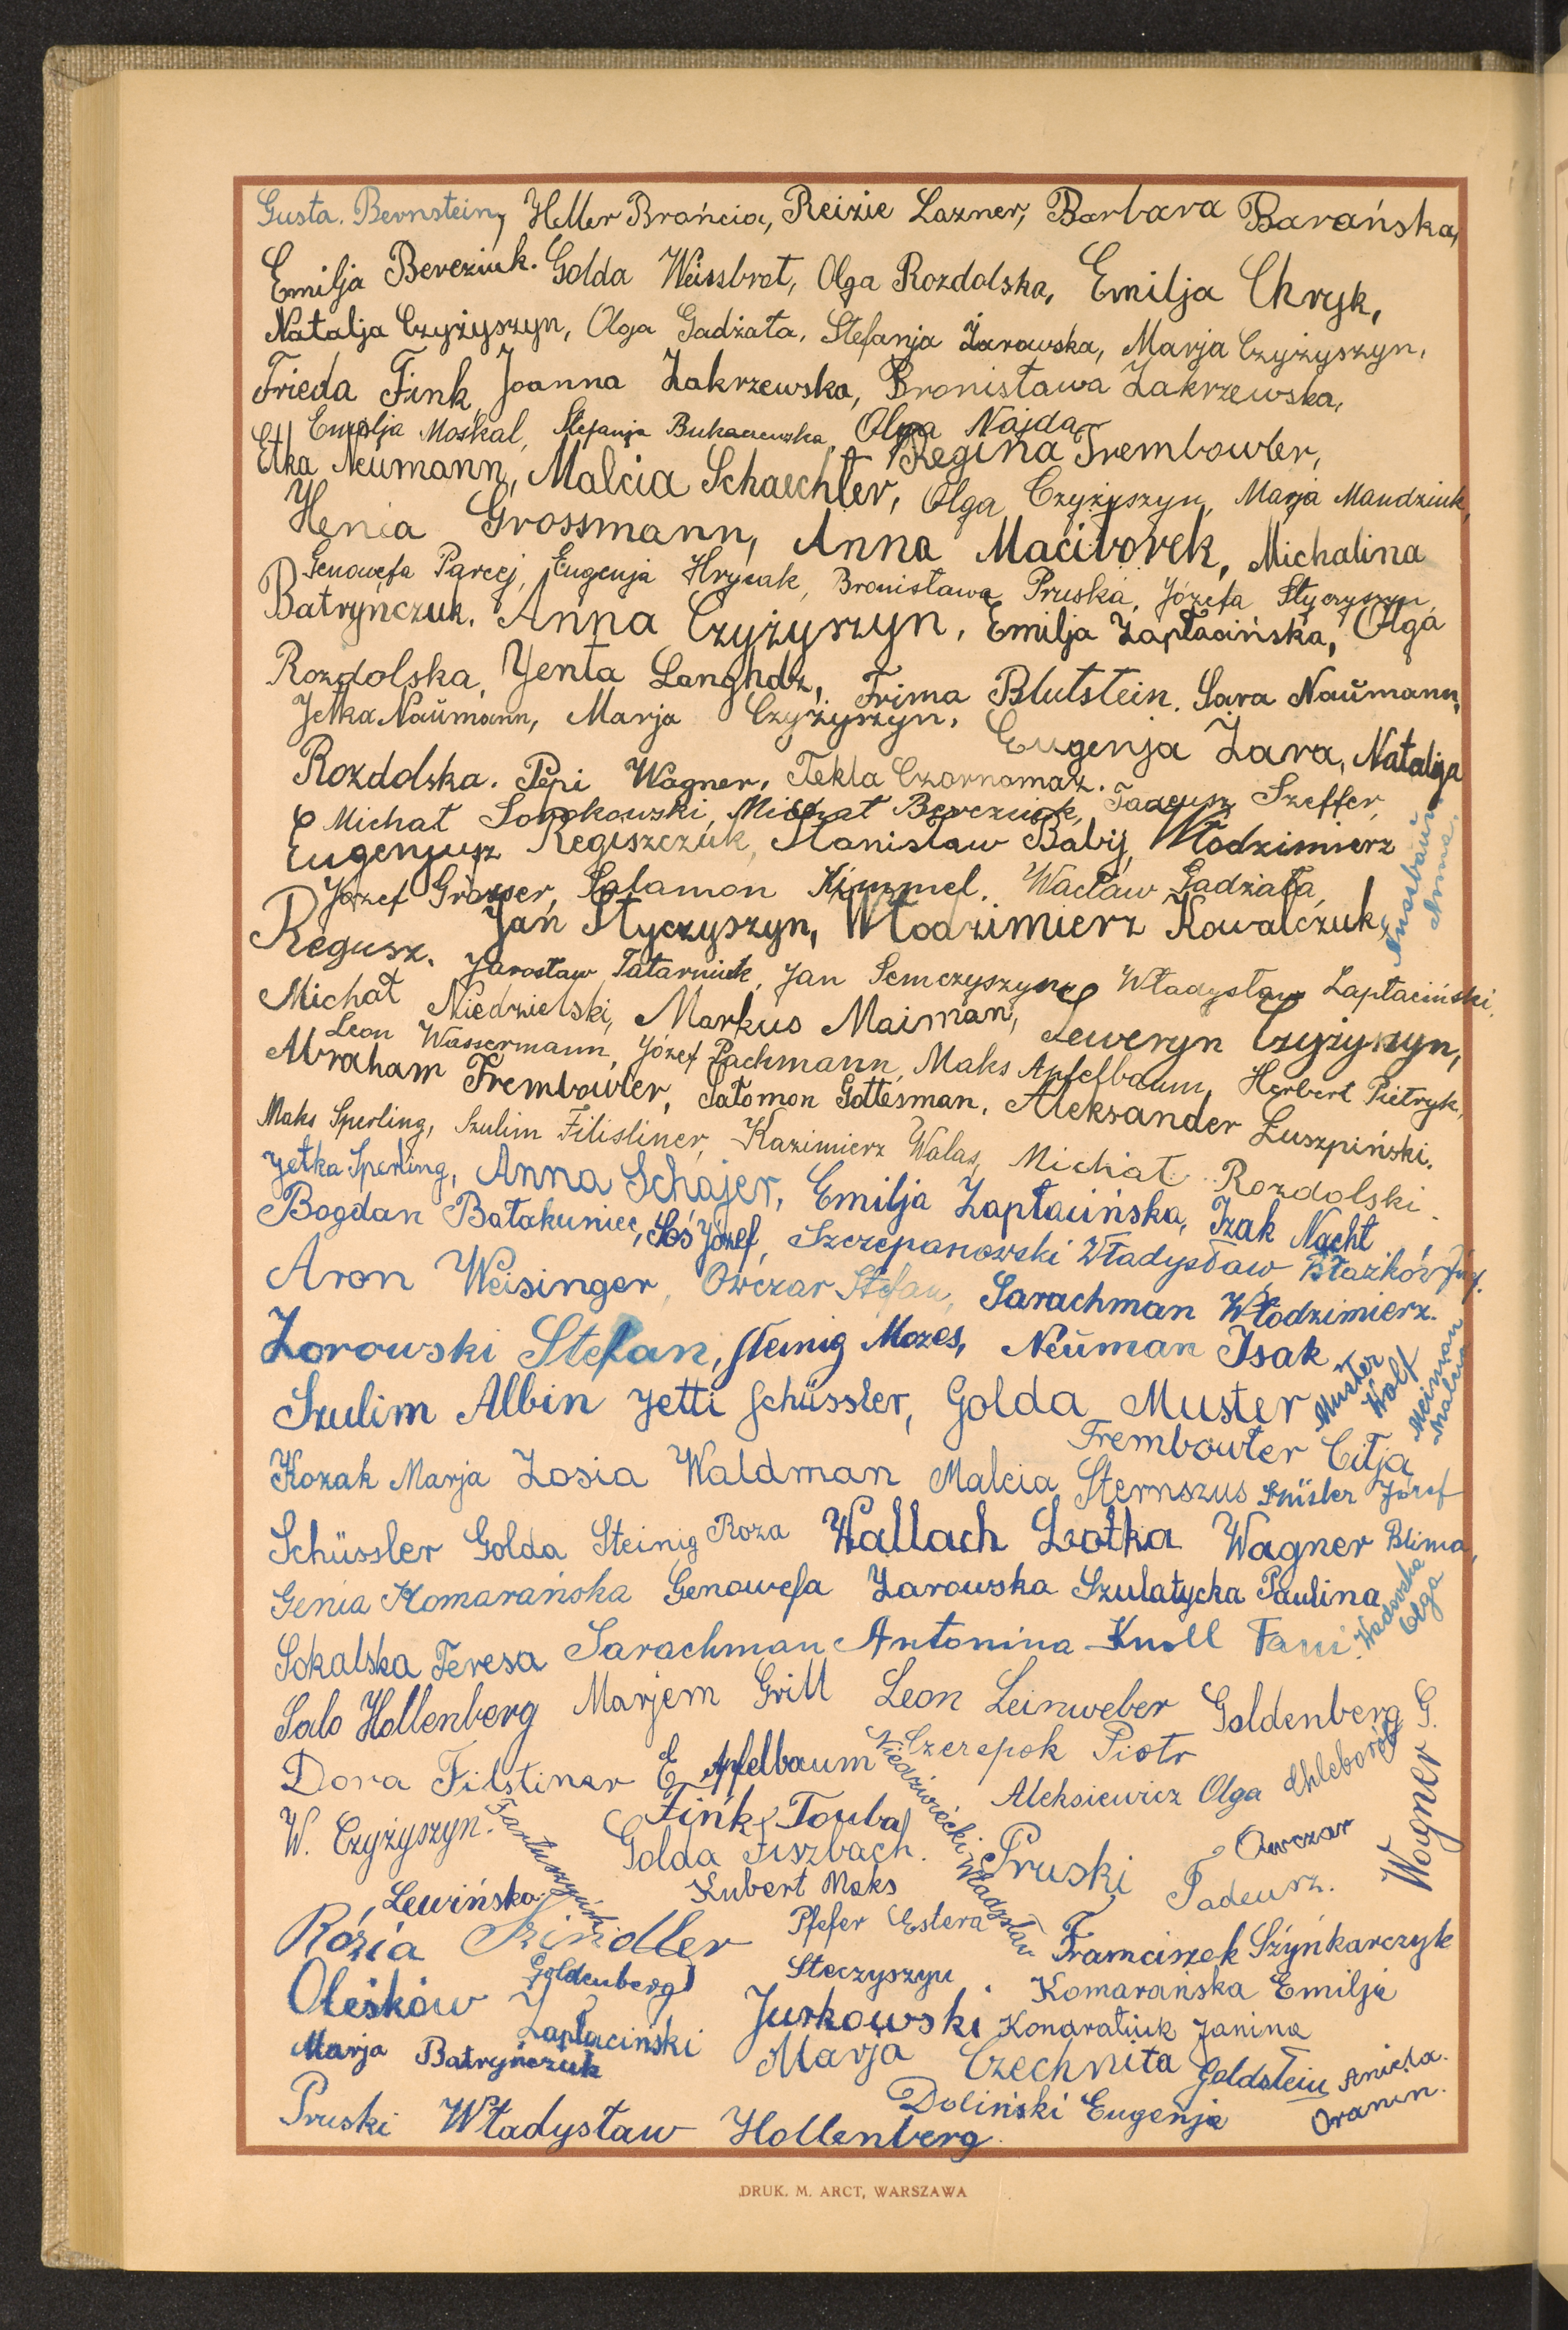 Gusta. Bernstein, Heller Brańcia, Reizie Lazner, Barbara Barańska,
Emilja Bereziuk. Golda Weissbrot, Olga Rozdolska, Emilja Chryk,
Natalja Czyżyszyn, Olga Gadżała, Stefanja Żarowska, Marja Czyżyszyn,
Frieda Fink, Joanna Zakrzewska, Bronisława Zakrzewska,
Emilja Moskal, Stefanja Bukaczewska, Olga Najda
Etka Neumann, Malcia Schaechter, Regina Trembowler,
Olga Czyżyszyn, Marja Mandziuk,
Henia Grossmann, Anna Maciborek, Michalina
Genowefa Parcej, Eugenja Hrycak, Bronisława Pruska, Józefa Styczyszyn,
Batryńczuk, Anna Czyżyszyn, Emilja Zapłacińska, Olga
Rozdolska, Yenta Langhdz, Frima Blutstein, Sara Naümann,
Jetka Naümann, Marja Czyżyszyn, Eugenja Zara, Natalja
Rozdolska. Pepi Wagner, Tekla Czornomaz.
Michał Sorokowski, Michał Bereziuk, Tadeusz Szeffer,
Eugenjusz Regiszczuk, Stanisław Babij, Włodzimierz
Nussbaum
Anna,
Józef Grosser, Salamon Kimmel, Wacław Gadziała,
Regusz. Jan Styczyszyn, Włodzimierz Kowalczuk,
Jarosław Tatarniuk, Jan Semczyszyn, Władysław Zapłaciński,
Michał Niedzielski, Markus Maiman, Seweryn Czyżyszyn,
Leon Wassermann, Józef Pachmann, Maks Apfelbaum, Herbert Pietryk,
Abraham Trembowler, Salomon Gottesman, Aleksander Łuszpiński.
Maks Sperling, Szulim Filisliner, Kazimierz Walas, Michał Rozdolski.
Jetka Sperling, Anna Schajer, Emilja Zapłacińska, Izak Nacht,
Bogdan Batakuniec, Łoś Józef, Szczepanowski Władysław, Błażków Józ.
Aron Weisinger, Owczar Stefan, Sarachman Włodzimierz.
Zorowski Stefan, Steinig Mozes, Neuman Isak
Szulim Albin Jetti Schüssler, Golda Muster
Muster
Wolf
Meiman
Malcia
Trembowler Cilja
Kozak Marja Zosia Waldman Malcia Sternszus Szüsler Józef
Schüssler Golda Steinig Roza Wallach Lotka Wagner Blima,
Genia Komarańska Genowefa Zarowska Szulatycka Paulina
Sokalska Teresa Sarachman Antonina Knoll Fani
Wadowska
Olga
Salo Hollenberg Marjem Grill Leon Leinweber Goldenberg G.
Dora Filstiner E. Apfelbaum Czerepok Piotr
Niedźwiecki Władysław
Fink Touba Aleksiewicz Olga
W. Czyżyszyn. Golda Fiszbach. Pruski Owczar
Tadeusz.
Wagner
Lewińska Kubert Maks
Rózia Szindler Pfefer Estera Franciszek Szynkarczyk
Goldenberg Steczyszyn Komarańska Emilja
Oleśków Zapłaciński Jurkowski Kondratiuk Janina
Marja Batryńczuk Marja Czechnita Goldstein Aniela.
Doliński Eugenja
Pruski Władysław Hollenberg
DRUK. M. ARCT, WARSZAWA